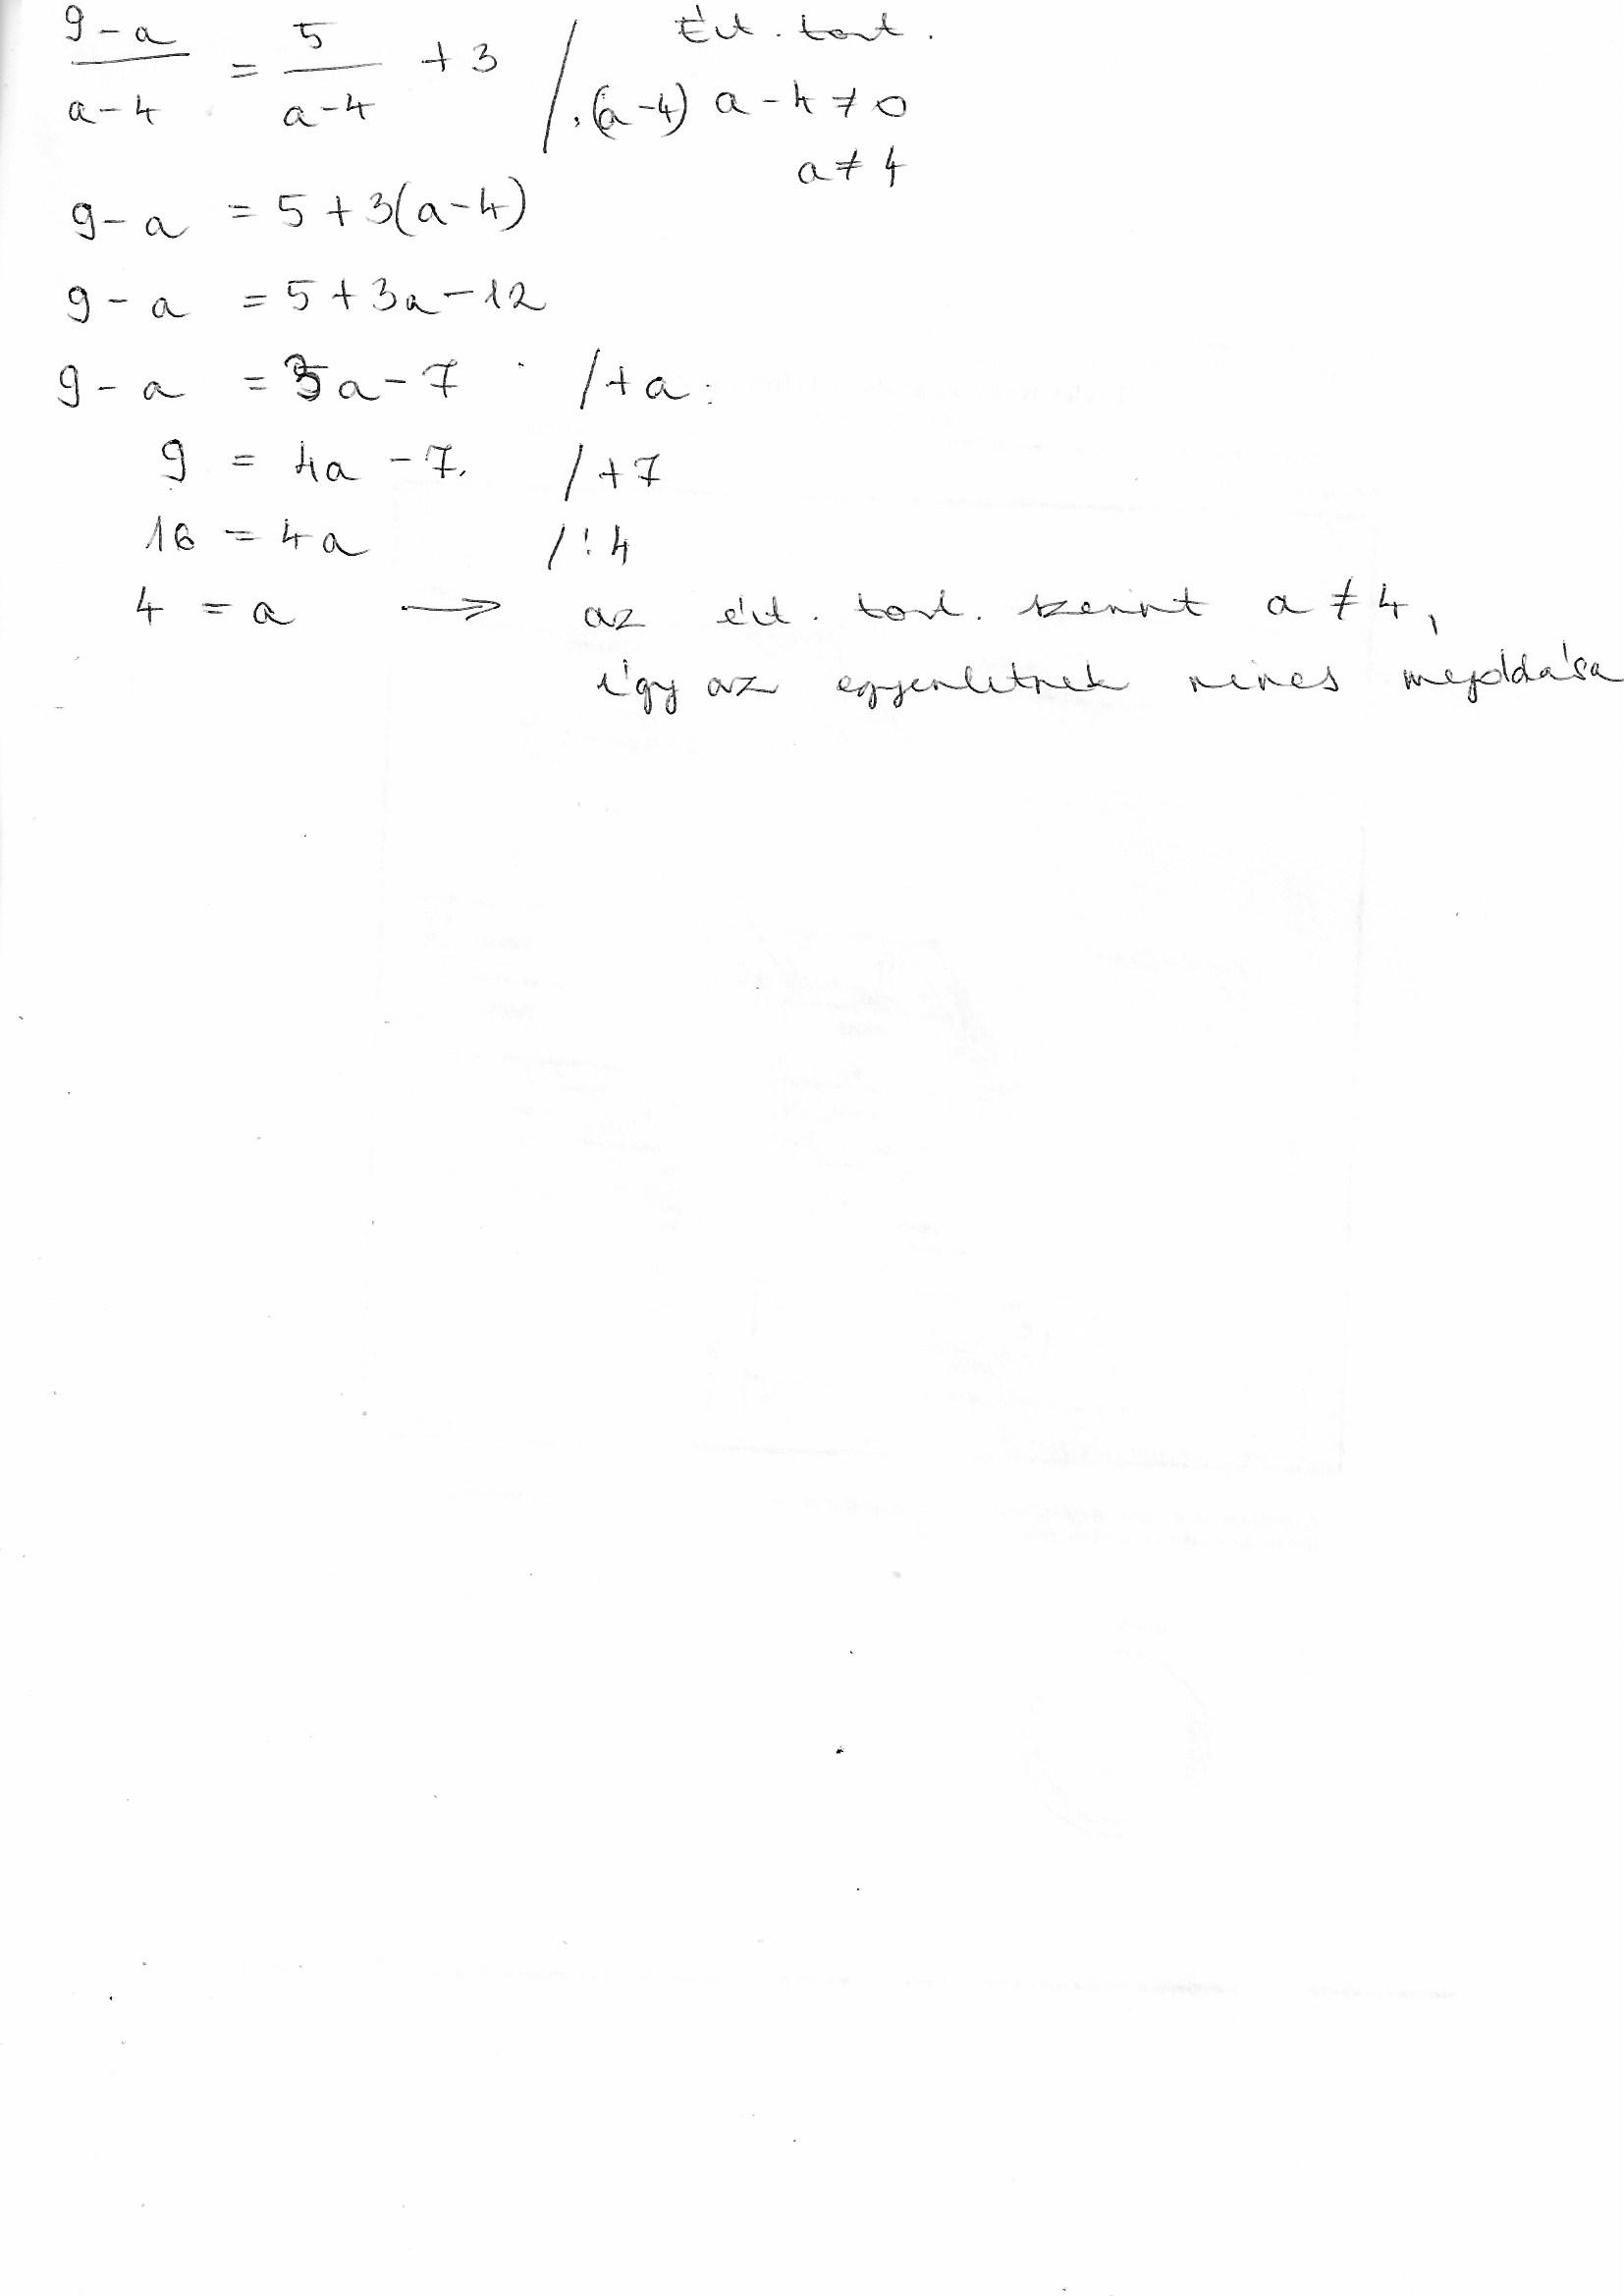 (9-a)/(a-4) = 5/(a-4) + 3 /·(a-4) Ért. tart.
a-4≠0
a≠4
9-a = 5+3(a-4)
9-a = 5+3a-12
9-a = 3a-7 /+a
9 = 4a-7 /+7
16 = 4a /:4
4 = a → az ért. tart. szerint a≠4,
így az egyenletnek nincs megoldása